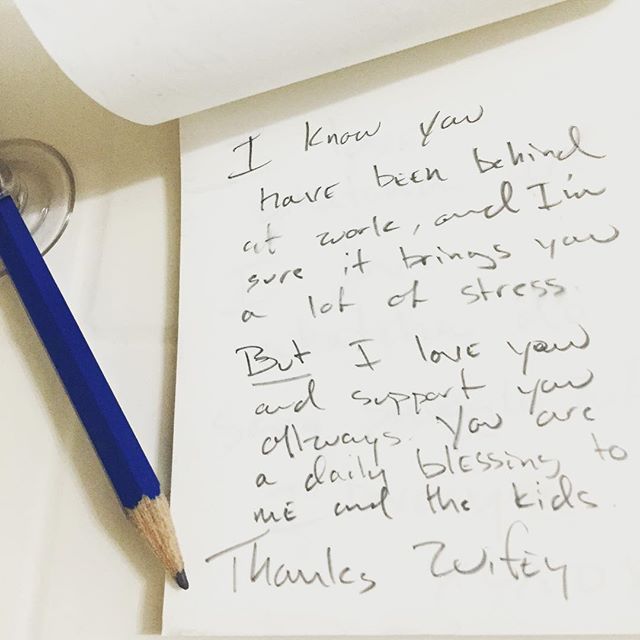 I know you
have been behind
at work, and I'm
sure it brings you
a lot of stress.
But I love you
and support you
allways. You are
a daily blessing to
me and the kids.
Thanks Wifey